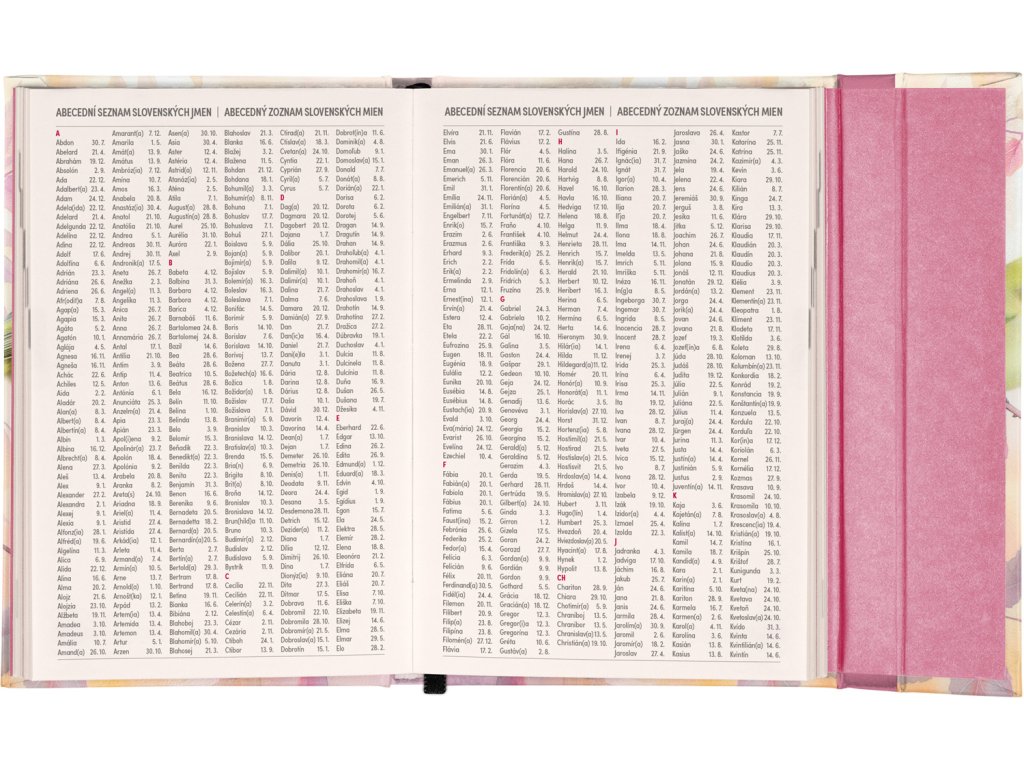 ABECEDNÍ SEZNAM SLOVENSKÝCH JMEN | ABECEDNÝ ZOZNAM SLOVENSKÝCH MIEN
A
Abdon 30. 7.
Abelard 21. 4.
Abrahám 19. 12.
Absolón 2. 9.
Ada 22. 12.
Adalbert(a) 23. 4.
Adam 24. 12.
Adela(ida) 22. 12.
Adelard 21. 4.
Adelgunda 22. 12.
Adelína 22. 12.
Adina 22. 12.
Adolf 17. 6.
Adolfína 6. 6.
Adrián 23. 3.
Adriána 26. 6.
Adriena 26. 6.
Afr(odit)a 7. 8.
Agap(a) 15. 3.
Agapia 15. 3.
Agáta 5. 2.
Agatón 10. 1.
Aglája 4. 5.
Agnesa 16. 11.
Agneša 16. 11.
Achác 22. 6.
Achiles 12. 5.
Aida 2. 2.
Aladár 20. 2.
Alan(a) 8. 3.
Albert(a) 8. 4.
Albertín(a) 8. 4.
Albín 1. 3.
Albína 16. 12.
Albrecht(a) 8. 4.
Alena 27. 3.
Aleš 13. 4.
Alex 9. 1.
Alexander 27. 2.
Alexandra 2. 1.
Alexej 9. 1.
Alexia 9. 1.
Alfonz(a) 28. 1.
Alfréd(a) 19. 6.
Algelína 11. 3.
Alica 6. 9.
Alida 22. 12.
Alina 16. 6.
Alma 20. 2.
Alojz 21. 6.
Alojzia 23. 10.
Alžbeta 19. 11.
Amadea 3. 10.
Amadeus 3. 10.
Amália 10. 7.
Amand(a) 26. 10.
Amarant(a) 7. 12.
Amarila 1. 5.
Amát(a) 13. 9.
Amátus 13. 9.
Ambróz(ia) 7. 12.
Amina 10. 7.
Amos 16. 3.
Anabela 20. 8.
Anastáz(a) 30. 4.
Anatol 21. 10.
Anatólia 21. 10.
Andrea 5. 1.
Andreas 30. 11.
Andrej 30. 11.
Andronik(a) 17. 5.
Aneta 26. 7.
Anežka 2. 3.
Angel(a) 11. 3.
Angelika 11. 3.
Anica 26. 7.
Anita 26. 7.
Anna 26. 7.
Annamária 26. 7.
Antal 17. 1.
Antília 21. 10.
Antim 3. 9.
Antip 11. 4.
Anton 13. 6.
Antónia 6. 1.
Anunciáta 25. 3.
Anzelm(a) 21. 4.
Apia 23. 3.
Apián 23. 3.
Apol(i)ena 9. 2.
Apolinár(a) 23. 7.
Apolón 18. 4.
Apolónia 9. 2.
Arabela 20. 8.
Aranka 8. 2.
Areta(s) 24. 10.
Ariadna 18. 9.
Ariel(a) 11. 4.
Aristid 27. 4.
Aristída 27. 4.
Arkád(ia) 12. 1.
Arleta 11. 4.
Armand(a) 7. 4.
Armín(a) 10. 5.
Arne 13. 7.
Arnold(a) 1. 10.
Arnošt(ka) 12. 1.
Arpád 13. 2.
Artem(ia) 13. 4.
Artemida 13. 4.
Artemon 13. 4.
Artur 5. 1.
Arzen 30. 10.
Asen(a) 30. 10.
Asia 30. 4.
Aster 12. 4.
Astéria 12. 4.
Astrid(a) 12. 11.
Atanáz(ia) 2. 5.
Aténa 2. 5.
Atila 7. 1.
August(a) 28. 8.
Augustín(a) 28. 8.
Aurel 25. 10.
Aurélia 31. 10.
Auróra 22. 1.
Axel 2. 9.
B
Babeta 4. 12.
Balbína 31. 3.
Barbara 4. 12.
Barbora 4. 12.
Barica 4. 12.
Barnabáš 11. 6.
Bartolomea 24. 8.
Bartolomej 24. 8.
Bazil 14. 6.
Bea 28. 6.
Beáta 28. 6.
Beatrica 10. 5.
Beátus 28. 6.
Bela 16. 12.
Belín 11. 10.
Belina 1. 10.
Belinda 13. 8.
Belo 3. 9.
Belomír 15. 3.
Beňadik 22. 3.
Benedikt(a) 22. 3.
Benilda 22. 3.
Benita 22. 3.
Benjamín 31. 3.
Benon 16. 6.
Berenika 9. 6.
Bernadeta 20. 5.
Bernadetta 18. 2.
Bernard(a) 20. 5.
Bernardín(a) 20. 5.
Berta 2. 7.
Bertín(a) 2. 7.
Bertold(a) 29. 3.
Bertram 17. 8.
Bertrand 17. 8.
Betina 19. 11.
Bianka 16. 6.
Bibiána 2. 12.
Blahoboj 23. 3.
Blahomil(a) 30. 4.
Blahomír(a) 5. 10.
Blahosej 21. 3.
Blahoslav 21. 3.
Blanka 16. 6.
Blažej 3. 2.
Blažena 11. 5.
Bohdan 21. 12.
Bohdana 18. 1.
Bohumil(a) 3. 3.
Bohumír(a) 8. 11.
Bohuna 7. 1.
Bohuslav 17. 7.
Bohuslava 7. 1.
Bohuš 27. 1.
Boislava 5. 9.
Bojan(a) 5. 9.
Bojimír(a) 5. 9.
Bojislav 5. 9.
Bolemír(a) 16. 3.
Boleslav 16. 3.
Boleslava 7. 1.
Bonifác 14. 5.
Borimír 5. 9.
Boris 14. 10.
Borislav 7. 6.
Borislava 14. 10.
Borivoj 13. 7.
Božena 27. 7.
Božetech(a) 16. 6.
Božica 1. 8.
Božidar(a) 1. 8.
Božislav 17. 7.
Božislava 7. 1.
Branimír(a) 5. 9.
Branislav 10. 3.
Branislava 14. 12.
Bratislav(a) 10. 3.
Brenda 15. 5.
Bria(n) 6. 9.
Brigita 8. 10.
Brit(a) 8. 10.
Broňa 14. 12.
Bronislav 10. 3.
Bronislava 14. 12.
Brun(hild)a 11. 10.
Bruno 10. 3.
Budimír(a) 2. 12.
Budislav 2. 12.
Budislava 5. 9.
Bystrík 11. 9.
C
Cecília 22. 11.
Cecilián 22. 11.
Celerín(a) 3. 2.
Celestín(a) 6. 4.
Cézar 2. 11.
Cezária 2. 11.
Ctiboh 24. 1.
Ctibor 13. 9.
Ctirad(a) 21. 11.
Ctislav(a) 18. 3.
Cvetan(a) 24. 10.
Cyntia 22. 1.
Cyprián 27. 9.
Cyril(a) 5. 7.
Cyrus 5. 7.
D
Dag(a) 20. 12.
Dagmara 20. 12.
Dagobert 20. 12.
Dajana 1. 7.
Dália 25. 10.
Dalibor 20. 1.
Dalila 9. 12.
Dalimil(a) 10. 1.
Dalimír(a) 10. 1.
Dalina 21. 7.
Dalma 7. 6.
Damara 20. 12.
Damián(a) 27. 9.
Dan 21. 7.
Dan(ic)a 16. 4.
Daniel 21. 7.
Dani(e)la 3. 1.
Danuta 3. 1.
Dária 12. 8.
Darina 12. 8.
Dárius 12. 8.
Daša 10. 1.
Dávid 30. 12.
Davorín 12. 4.
Davorína 14. 4.
Dean(a) 1. 7.
Dejan 13. 6.
Demeter 26. 10.
Demetria 26. 10.
Denis(a) 1. 10.
Deodata 9. 11.
Deora 24. 4.
Desana 3. 5.
Desdemona 28. 11.
Detrich 15. 12.
Dezider(a) 11. 2.
Diana 1. 7.
Dília 12. 12.
Dimitrij 26. 10.
Dina 1. 7.
Dionýz(ia) 9. 10.
Dita 27. 3.
Ditmar 17. 5.
Dobrava 11. 6.
Dobromil 22. 10.
Dobromila 28. 10.
Dobromír(a) 21. 5.
Dobroslav(a) 15. 1.
Dobrotín 15. 1.
Dobrot(ín)a 11. 6.
Dominik(a) 4. 8.
Domoľub 9. 1.
Domoslav(a) 15. 1.
Donald 7. 7.
Donát(a) 8. 8.
Dorián(a) 22. 1.
Dorisa 6. 2.
Dorota 6. 2.
Dorotej 5. 6.
Dragan 14. 9.
Dragutín 14. 9.
Drahan 14. 9.
Draholub(a) 4. 1.
Drahomil(a) 4. 1.
Drahomír(a) 16. 7.
Drahoň 4. 1.
Drahoslav 4. 1.
Drahoslava 1. 9.
Drahotín 14. 9.
Drahotína 27. 2.
Dražica 27. 2.
Dúbravka 19. 1.
Duchoslav 4. 1.
Dulcia 11. 8.
Dulcinela 11. 8.
Dulcínia 11. 8.
Duňa 16. 9.
Dušan 26. 5.
Dušana 19. 7.
Džesika 4. 11.
E
Eberhard 22. 6.
Edgar 13. 10.
Edina 26. 2.
Edita 26. 9.
Edmund(a) 1. 12.
Eduard(a) 18. 3.
Edvin 4. 10.
Egid 1. 9.
Egídius 1. 9.
Egon 15. 7.
Ela 24. 5.
Elektra 28. 5.
Elemír 28. 2.
Elena 18. 8.
Eleonóra 21. 2.
Elfrida 6. 5.
Eliána 20. 7.
Eliáš 20. 7.
Elisa 7. 10.
Eliška 7. 10.
Elizabeta 19. 11.
Elizej 14. 6.
Elma 28. 5.
Elmar 29. 5.
Elo 28. 2.
ABECEDNÍ SEZNAM SLOVENSKÝCH JMEN | ABECEDNÝ ZOZNAM SLOVENSKÝCH MIEN
Elvíra 21. 11.
Elvis 21. 6.
Ema 30. 1.
Eman 26. 3.
Emanuel(a) 26. 3.
Emerich 5. 11.
Emil 31. 1.
Emília 24. 11.
Emilián(a) 31. 1.
Engelbert 7. 11.
Enrik(a) 15. 7.
Erazim 2. 6.
Erazmus 2. 6.
Erhard 9. 3.
Erich 2. 2.
Erik(a) 2. 2.
Ermelinda 2. 9.
Erna 12. 1.
Ernest(ína) 12. 1.
Ervín(a) 21. 4.
Estera 12. 4.
Eta 28. 11.
Etela 22. 2.
Eufrozína 25. 9.
Eugen 18. 11.
Eugénia 18. 9.
Eulália 12. 2.
Eunika 20. 10.
Eusébia 14. 8.
Eusébius 14. 8.
Eustach(ia) 20. 9.
Evald 3. 10.
Eva(mária) 24. 12.
Evarist 26. 10.
Evelína 24. 12.
Ezechiel 10. 4.
F
Fábia 20. 1.
Fabián(a) 20. 1.
Fabiola 20. 1.
Fábius 20. 1.
Fatima 5. 6.
Faust(ína) 15. 2.
Febrónia 25. 6.
Federika 25. 2.
Fedor(a) 15. 4.
Felícia 6. 3.
Felicián 9. 6.
Félix 20. 11.
Ferdinand(a) 30. 5.
Fidél(ia) 24. 4.
Filemon 20. 11.
Filibert 20. 9.
Filip(a) 23. 8.
Filipína 23. 8.
Filomén(a) 27. 12.
Flávia 17. 2.
Flavián 17. 2.
Flávius 17. 2.
Flór 4. 5.
Flóra 11. 6.
Florencia 20. 6.
Florencián 20. 6.
Florentín(a) 20. 6.
Florián(a) 4. 5.
Florína 4. 5.
Fortunát(a) 12. 7.
Fraňo 4. 10.
František 4. 10.
Františka 9. 3.
Frederik(a) 25. 2.
Frída 6. 5.
Fridolín(a) 6. 3.
Fridrich 5. 3.
Fruzína 25. 9.
G
Gabriel 24. 3.
Gabriela 10. 2.
Gaja(na) 24. 12.
Gál 16. 10.
Galina 3. 5.
Gaston 24. 4.
Gašpar 29. 1.
Gedeon 10. 10.
Geja 24. 12.
Gejza 25. 1.
Genadij 13. 6.
Genovéva 3. 1.
Georg 24. 4.
Georgia 15. 2.
Georgína 15. 2.
Gerald(a) 5. 12.
Geraldína 5. 12.
Gerazim 4. 3.
Gerda 19. 5.
Gerhard 28. 11.
Gertrúda 19. 5.
Gilbert(a) 24. 10.
Ginda 3. 3.
Girron 1. 2.
Gizela 17. 5.
Goran 24. 2.
Gorazd 27. 7.
Gordan(a) 9. 9.
Gordián 9. 9.
Gordon 9. 9.
Gothard 5. 5.
Grácia 18. 12.
Gracián(a) 18. 12.
Gregor 12. 3.
Gregor(i)a 12. 3.
Gregorína 12. 3.
Gréta 10. 6.
Gustáv(a) 2. 8.
Gustína 28. 8.
H
Halina 3. 5.
Hana 26. 7.
Harold 24. 10.
Hartvig 8. 8.
Havel 16. 10.
Havla 16. 10.
Hedviga 17. 10.
Helena 18. 8.
Helga 11. 9.
Helmut 24. 4.
Henrieta 28. 11.
Henrich 15. 7.
Henrik(a) 15. 7.
Herald 21. 10.
Herbert 10. 12.
Heribert 16. 3.
Herína 6. 5.
Herman 7. 4.
Hermína 6. 5.
Herta 14. 6.
Hieronym 30. 9.
Hilár(ia) 14. 1.
Hilda 11. 12.
Hildegard(a) 11. 12.
Homér 20. 11.
Honór(a) 10. 9.
Honorát(a) 11. 1.
Horác 3. 5.
Horislav(a) 27. 10.
Horst 31. 12.
Hortenz(ia) 5. 8.
Hostimil(a) 21. 5.
Hostirad 21. 5.
Hostislav(a) 21. 5.
Hostisvit 21. 5.
Hrdoslav(a) 14. 4.
Hrdoš 14. 4.
Hromislav(a) 27. 10.
Hubert 3. 11.
Hugo(lín) 1. 4.
Humbert 25. 3.
Hvezdoň 20. 4.
Hviezdoslav(a) 20. 5.
Hyacint(a) 17. 8.
Hynek 1. 2.
Hypolit 13. 8.
CH
Chariton 28. 9.
Chiara 29. 10.
Chotimír(a) 5. 9.
Chraniboj 13. 5.
Chranibor 13. 5.
Chranislav(a) 13. 5.
Christián(a) 19. 10.
I
Ida 16. 2.
Ifigénia 21. 9.
Ignác(ia) 31. 7.
Ignát 31. 7.
Igor(a) 10. 4.
Ilarion 28. 3.
Iliana 20. 7.
Iľja 20. 7.
Iľja 20. 7.
Iľja 20. 7.
Ilma 18. 4.
Ilona 18. 8.
Ima 14. 11.
Imelda 13. 5.
Imrich 5. 11.
Imriška 5. 11.
Inéza 16. 11.
In(g)a 8. 5.
Ingeborga 30. 7.
Ingemar 30. 7.
Ingrida 8. 5.
Inocencia 28. 7.
Inocent 28. 7.
Irena 6. 4.
Irenej 3. 7.
Irída 25. 3.
Irina 6. 4.
Irisa 25. 3.
Irma 14. 11.
Ita 19. 12.
Iva 28. 12.
Ivan 8. 7.
Ivana 28. 12.
Ivar 10. 4.
Iveta 27. 5.
Ivica 15. 12.
Ivo 8. 7.
Ivona 28. 12.
Ivor 10. 4.
Izabela 9. 12.
Izák 19. 10.
Izidor(a) 4. 4.
Izmael 25. 4.
Izolda 22. 1.
J
Jadranka 4. 3.
Jadviga 17. 10.
Jáchim 16. 8.
Jakub 25. 7.
Ján 24. 6.
Jana 21. 8.
Janis 24. 6.
Jarmila 28. 4.
Jarolím(a) 30. 9.
Jaromil 2. 6.
Jaromír(a) 18. 2.
Jaroslav 27. 4.
Jaroslava 26. 4.
Jasna 30. 1.
Jaško 24. 6.
Jazmína 24. 2.
Jela 19. 4.
Jelena 22. 4.
Jens 24. 6.
Jeremiáš 30. 9.
Jerguš 3. 8.
Jesika 11. 6.
Jitka 5. 12.
Joachim 26. 7.
Johan 24. 6.
Johana 21. 8.
Jolana 15. 9.
Jonáš 12. 11.
Jonatán 29. 12.
Jordán(a) 13. 2.
Jorga 24. 4.
Jorik(a) 24. 4.
Jovan 24. 6.
Jovana 21. 8.
Jozef 19. 3.
Jozef(ín)a 6. 8.
Júda 28. 10.
Judáš 28. 10.
Judita 19. 12.
Júlia 22. 5.
Julián 9. 1.
Juliána 22. 5.
Július 11. 4.
Juraj(a) 24. 4.
Jürgen 24. 4.
Jurina 11. 3.
Justa 14. 4.
Justín(a) 14. 4.
Justinián 5. 9.
Justus 2. 9.
Juventín(a) 14. 11.
K
Kaja 3. 6.
Kajetán(a) 7. 8.
Kalina 1. 7.
Kalist(a) 14. 10.
Kamil 14. 7.
Kamila 5. 7.
Kandid(a) 4. 9.
Kara 2. 1.
Karin(a) 2. 1.
Karitína 5. 10.
Kariton 28. 9.
Karmela 16. 7.
Karmen(a) 2. 6.
Karol(a) 4. 11.
Karolína 3. 6.
Kasián 13. 8.
Kasius 13. 8.
Kastor 7. 7.
Katarína 25. 11.
Katrína 25. 11.
Kazimír(a) 4. 3.
Kevin 3. 6.
Kiara 29. 10.
Kilián 8. 7.
Kinga 24. 7.
Kira 13. 3.
Klára 29. 10.
Klarisa 29. 10.
Klaudia 17. 3.
Klaudián 20. 3.
Klaudín 20. 3.
Klaudio 20. 3.
Klaudius 20. 3.
Klélia 3. 9.
Klement 23. 11.
Klementín(a) 23. 11.
Kleopatra 1. 8.
Kliment 23. 11.
Klodeta 17. 11.
Klotilda 3. 6.
Koleta 29. 8.
Koloman 13. 10.
Kolumbín(a) 23. 11.
Konkordia 18. 2.
Konrád 19. 2.
Konstancia 19. 9.
Konštantín(a) 19. 9.
Konzuela 13. 5.
Kordula 22. 10.
Korduľa 22. 10.
Kor(in)a 17. 12.
Koriolán 6. 3.
Kornel 26. 11.
Kornélia 17. 12.
Kozmas 27. 9.
Krasava 10. 9.
Krasomil 24. 10.
Krasomila 10. 10.
Krasoslav(a) 4. 8.
Krescenc(ia) 19. 4.
Kristián(a) 19. 10.
Kristína 16. 1.
Krišpín 25. 10.
Krištof 28. 7.
Kunigunda 3. 3.
Kurt 19. 2.
Kveta(na) 24. 10.
Kvetava 24. 10.
Kvetoň 24. 10.
Kvetoslav(a) 24. 10.
Kvido 31. 3.
Kvinta 14. 6.
Kvintilián(a) 14. 6.
Kvintín 14. 6.